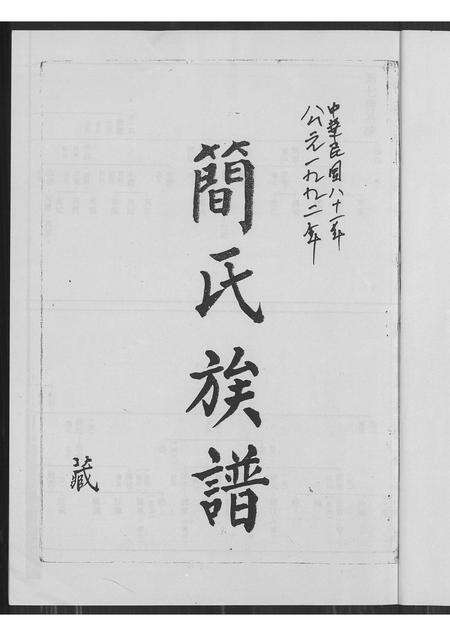 中華民国八十一年
公元一九九二年
簡氏族譜
藏